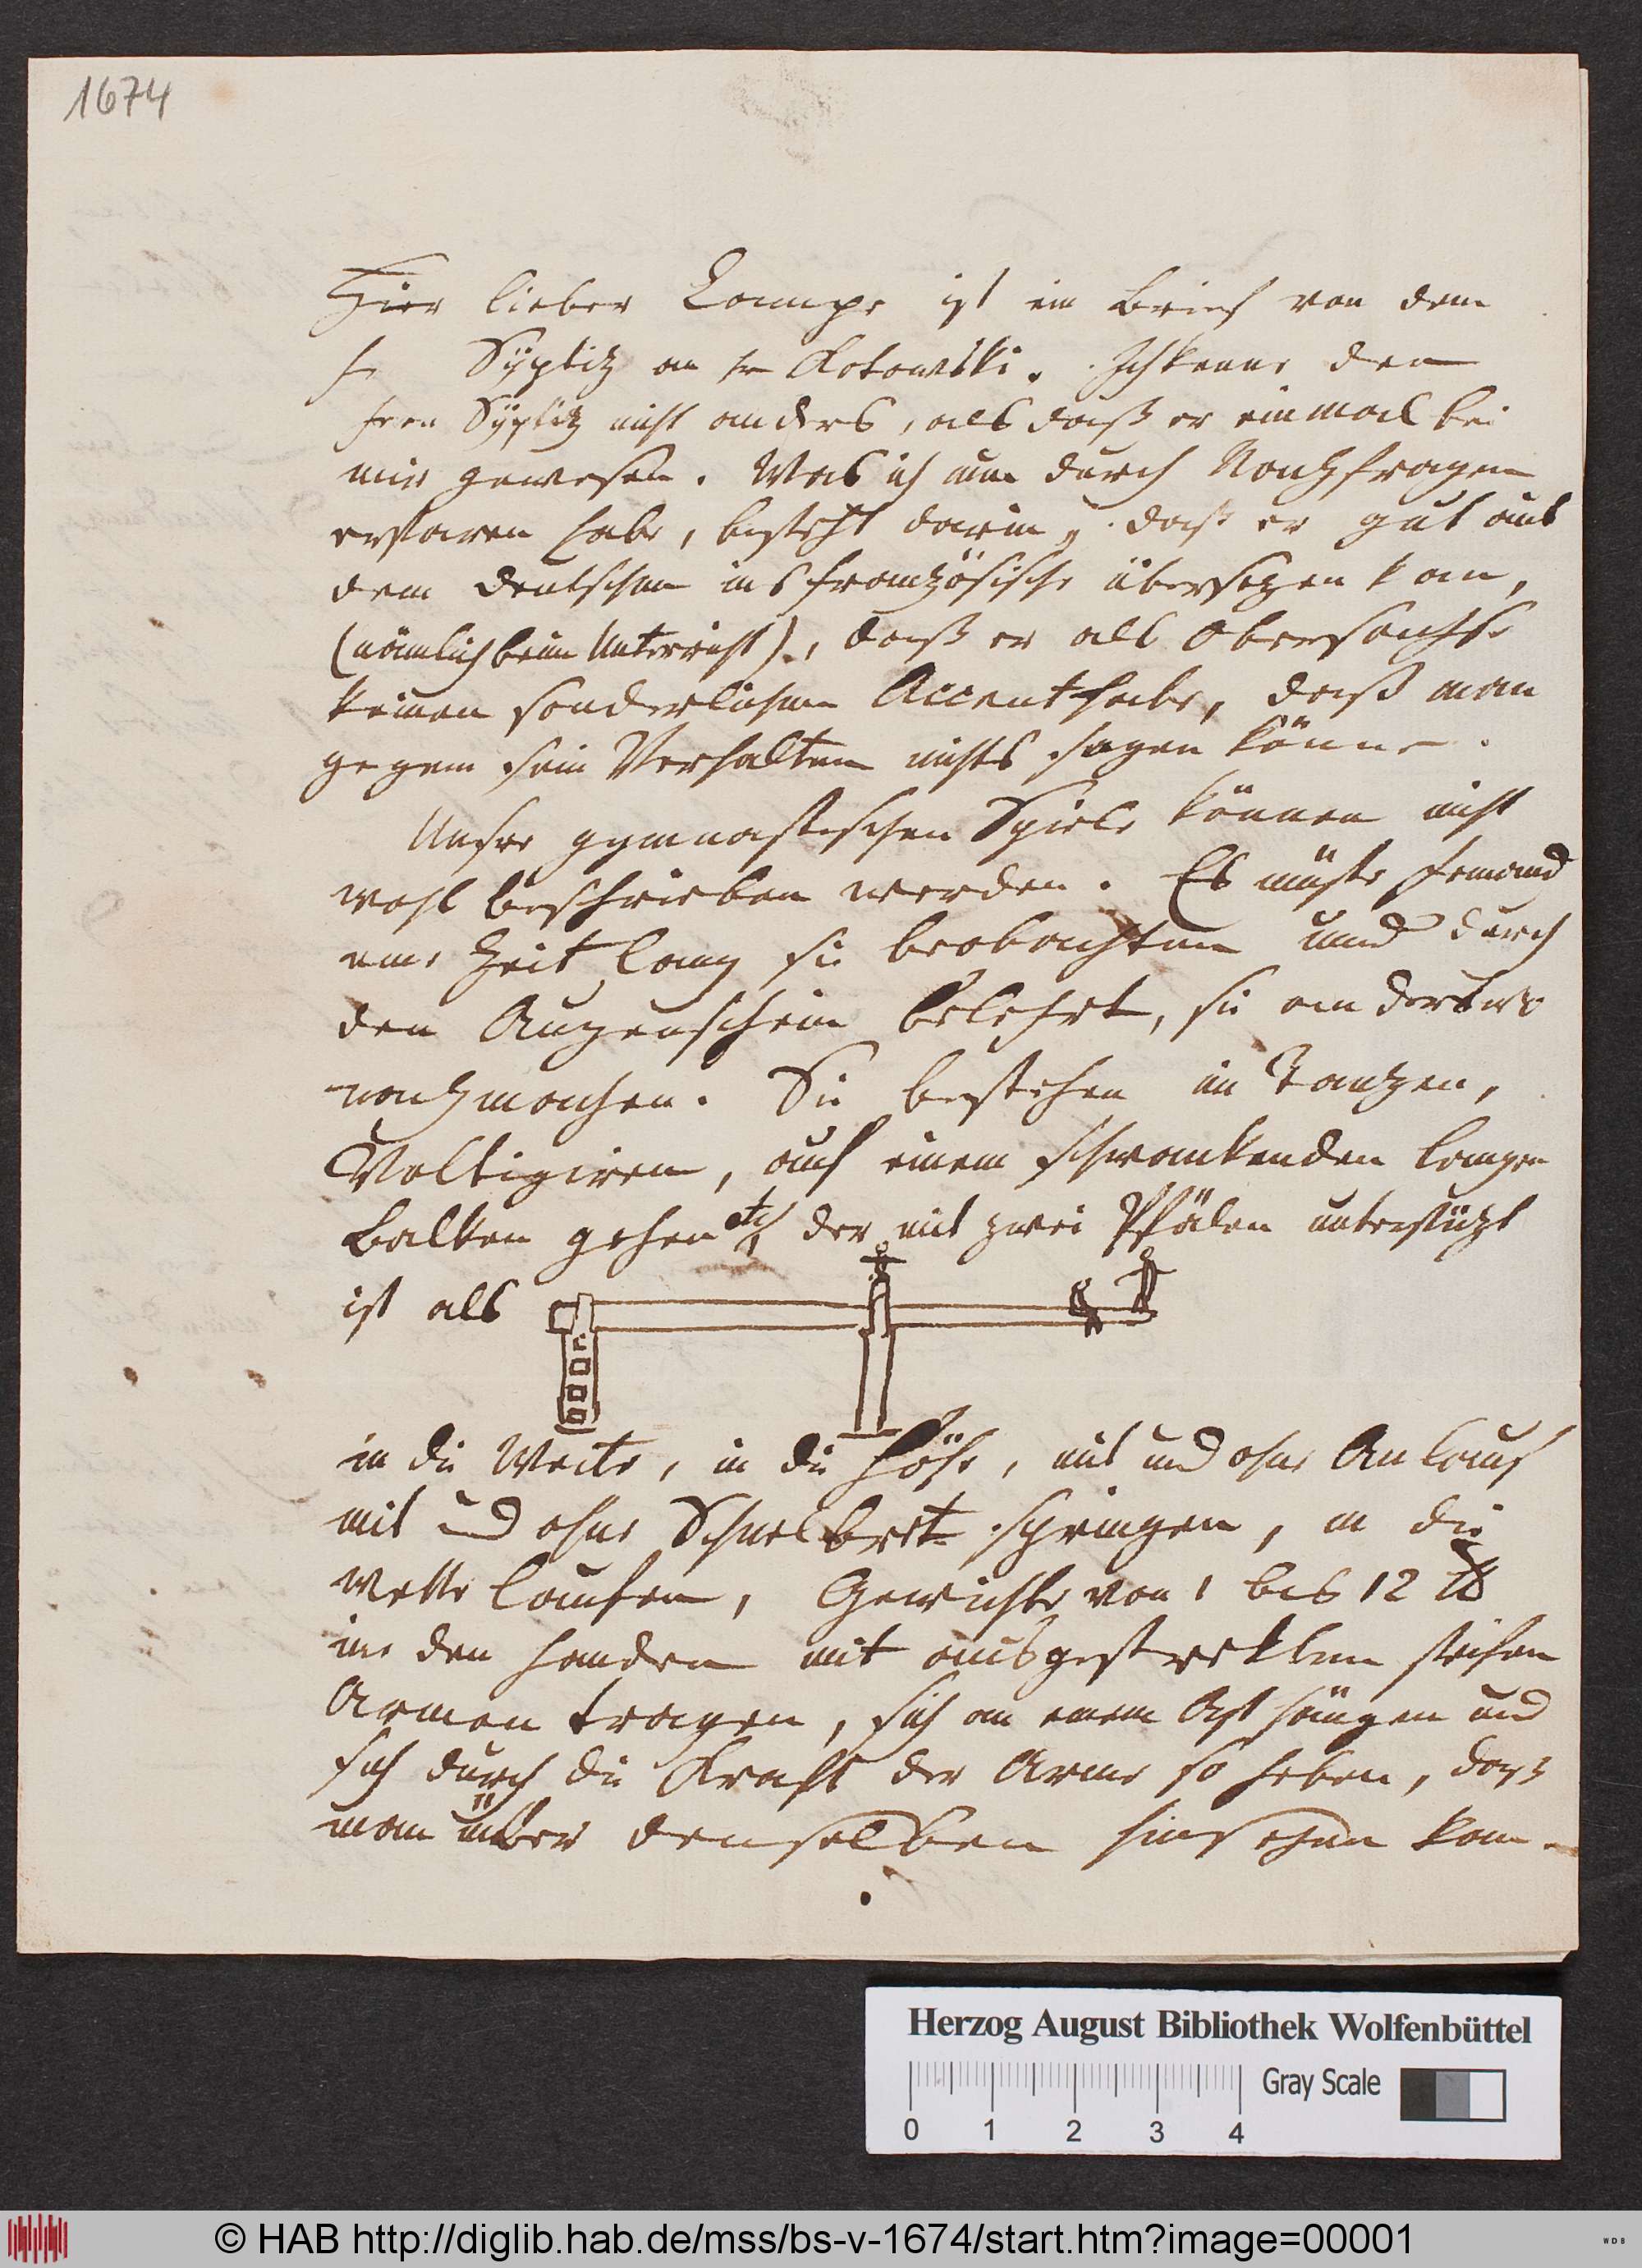 1674
Hier lieber Campe ist ein Brief von dem
H Sÿplitz an Hr Kotowski. Ich kenne den
Herrn Sÿplitz nicht anders, als daß er einmal bei
mir gewesen. Was ich nun durch Nachfragen
erfaren habe, besteht darin, daß er gut aus
dem deutschen ins französische übersezen kan,
(nämlich beim Unterricht)., daß er als Obersachse
keinen sonderlichen Accent habe, daß man
gegen sein Verhalten nichts sagen könne.
Unsre gymnastischen Spiele können nicht
wohl beschrieben werden. Es müste jemand
eine Zeit lang sie beobachten und durch
den Augenschein belehrt, sie anderswo
nachmachen. Sie bestehen im Tanzen,
Voltigiren, auf einem schwankenden langen
Balken gehen etc der mit zwei Pfälen unterstüzt
ist als
in die Weite, in die Höhe, mit und ohne Anlauf
mit und ohne Schnelbret springen, in die
Wette laufen, Gewichte von 1 bis 12 ℔
in den Handen mit ausgestrekten steifen
Armen tragen, sich an einem Ast hängen und
sich durch die Kraft der Arme so heben, dass
man über denselben hinsehen kan.
Herzog August Bibliothek Wolfenbüttel
Gray Scale
0 1 2 3 4
© HAB http://diglib.hab.de/mss/bs-v-1674/start.htm?image=00001
WDB